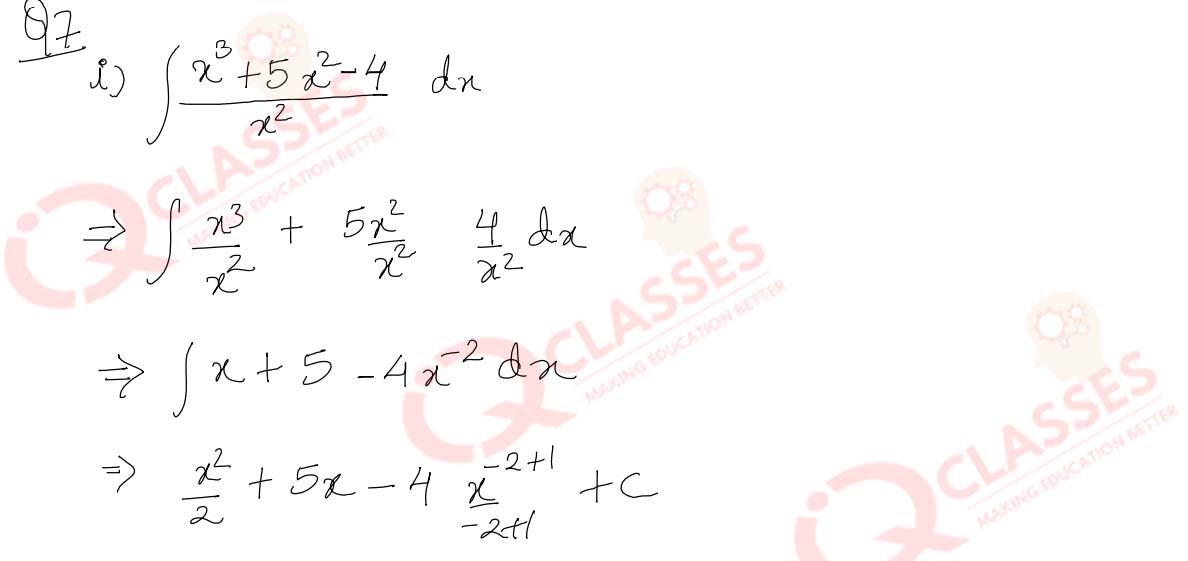 Q7
i) ∫ (x³ + 5x² - 4)/x² dx
⇒ ∫ x³/x² + 5x²/x² 4/x² dx
⇒ ∫ x + 5 - 4x⁻² dx
⇒ x²/2 + 5x - 4 x⁻²⁺¹/-2+1 + C
CLASSES
MAKING EDUCATION BETTER
CLASSES
MAKING EDUCATION BETTER
CLASSES
MAKING EDUCATION BETTER